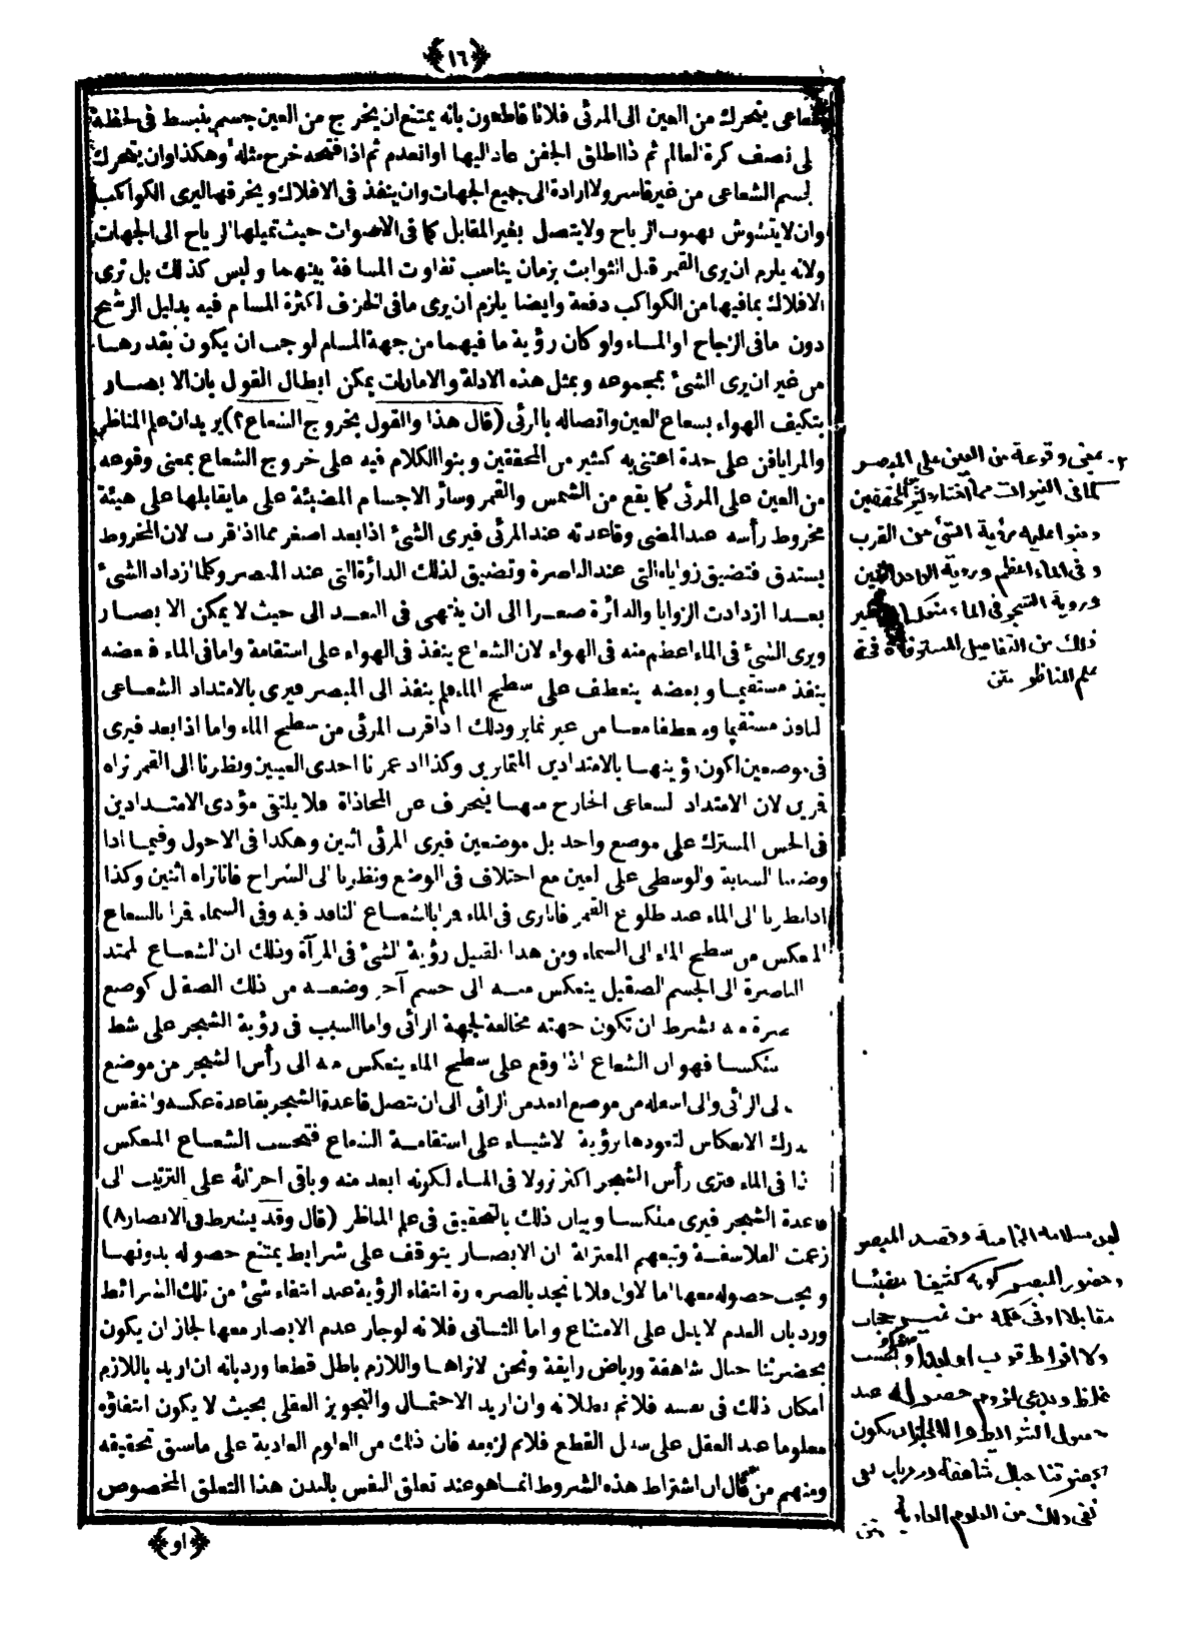 ﴿١٦﴾
شعاعى يتحرك من العين الى المرئى فلانا قاطعون بانه يمتنع ان يخرج من العين جسم ينبسط فى لحظة
لى نصف كرة العالم ثم ذا اطلق الجفن عاد اليها او انعدم ثم اذا فتحه خرج مثله وهكذا وان يتحرك
لجسم الشعاعى من غير قاسر ولا ارادة الى جميع الجهات وان ينفذ فى الافلاك ويخرقها ليرى الكواكب
وان لا يتشوش بهبوب الرياح ولا يتصل بغير المقابل كما فى الاصوات حيث تميلها الرياح الى الجهات
ولانه يلزم ان يرى القمر قبل الثوابت بزمان يناسب تفاوت المسافة بينهما وليس كذلك بل نرى
الافلاك بما فيها من الكواكب دفعة وايضا يلزم ان يرى ما فى الخزف لكثرة المسام فيه بدليل الرشح
دون ما فى الزجاج او الماء ولو كان رؤية ما فيهما من جهة المسام لوجب ان يكون بقدرها
من غير ان يرى الشئ بمجموعه وبمثل هذه الادلة والامارات يمكن ابطال القول بان الابصار
بتكيف الهواء بشعاع العين واتصاله بالمرئى (قال هذا والقول بخروج الشعاع ٢) يريد ان علم المناظر
والمرايا فن على حدة اعتنى به كثير من المحققين وبنوا الكلام فيه على خروج الشعاع بمعنى وقوعه
من العين على المرئى كما يقع من الشمس والقمر وسائر الاجسام المضيئة على ما يقابلها على هيئة
مخروط رأسه عند المضئ وقاعدته عند المرئى فيرى الشئ اذا بعد اصغر مما اذا قرب لان المخروط
يستدق فتضيق زواياه التى عند الباصرة وتضيق لذلك الدائرة التى عند المبصر وكلما ازداد الشئ
بعدا ازدادت الزوايا والدائرة صغرا الى ان ينتهى فى البعد الى حيث لا يمكن الابصار
ويرى الشئ فى الماء اعظم منه فى الهواء لان الشعاع ينفذ فى الهواء على استقامة واما فى الماء فبعضه
ينفذ مستقيما وبعضه ينعطف على سطح الماء ثم ينفذ الى المبصر فيرى بالامتداد الشعاعى
لنافذ مستقيما ومنعطفا معا من غير تمايز وذلك اذا قرب المرئى من سطح الماء واما اذا بعد فيرى
فى موضعين لكون رؤيتهما بالامتدادين المتمايزين وكذا اذا غمزنا احدى العينين ونظرنا الى القمر نراه
قمرين لان الامتداد لشعاعى الخارج منها ينحرف عن المحاذاة فلا يلتقى مؤدى الامتدادين
فى الحس المشترك على موضع واحد بل موضعين فيرى المرئى اثنين وهكذا فى الاحول وفيما اذا
وضعنا السبابة والوسطى على العين مع اختلاف فى الوضع ونظرنا الى السراج فانا نراه اثنين وكذا
اذا نظرنا الى الماء عند طلوع القمر فانا نرى فى الماء قمرا بالشعاع النافذ فيه وفى السماء قمرا بالشعاع
المنعكس من سطح الماء الى السماء ومن هذا القبيل رؤية الشئ فى المرآة وذلك ان الشعاع لممتد
الباصرة الى الجسم الصقيل ينعكس منه الى جسم آخر وضعه من ذلك الصقيل كوضع
صرة منه بشرط ان تكون جهته مخالفة لجهة الرائى واما السبب فى رؤية الشجر على شط
منتكسا فهو ان الشعاع اذا وقع على سطح الماء ينعكس منه الى رأس الشجر من موضع
لى الرائى والى اسفله من موضع ابعد من الرائى الى ان تتصل قاعدة الشجر بقاعدة عكسه والنفس
درك الانعكاس لتعودها برؤية الاشياء على استقامة الشعاع فتحسب الشعاع المنعكس
ذا فى الماء فترى رأس الشجر اكثر نزولا فى الماء لكونه ابعد منه وباقى اجزائه على الترتيب الى
قاعدة الشجر فيرى منتكسا وبيان ذلك بالتحقيق فى علم المناظر (قال وقد يشترط فى الابصار ٨)
زعمت الفلاسفة وتبعهم المعتزلة ان الابصار يتوقف على شرايط يمتنع حصوله بدونها
ويجب حصوله معها اما الاول فلانا نجد بالضرورة انتفاء الرؤية عند انتفاء شئ من تلك الشرائط
ورد بان العدم لا يدل على الامتناع واما الثانى فلانه لو جاز عدم الابصار معها لجاز ان يكون
بحضرتنا جبال شاهقة ورياض رايقة ونحن لا نراها واللازم باطل قطعا ورد بانه ان اريد باللازم
امكان ذلك فى نفسه فلا نم بطلانه وان اريد الاحتمال والتجويز العقلى بحيث لا يكون انتفاؤه
معلوما عند العقل على سبيل القطع فلا نم لزومه فان ذلك من العلوم العادية على ما سبق تحقيقه
ومنهم من قال ان اشتراط هذه الشروط انما هو عند تعلق النفس بالبدن هذا التعلق المخصوص
﴿او﴾
٢- بمعنى وقوعه من العين على المبصر
كما فى النيرات مما اختاره كثير المحققين
وبنوا عليه رؤية الشئ من القرب
وفى الماء اعظم ورؤية الواحد اثنين
ورؤية الشجر فى الماء منتكسا غير
ذلك من التفاصيل المستوفاة فى
علم المناظر متن
بعد سلامة الحاسة وقصد المبصر
وحضور المبصر كونه كثيفا مضيئا
مقابلا او فى حكمه من غير حجاب
ولا افراط قرب او بعد
ويدعى لزوم حصوله عند
حصول الشرائط والا لجاز ان يكون
بحضرتنا جبال شاهقة ورد بان
نفى ذلك من العلوم العادية
متن